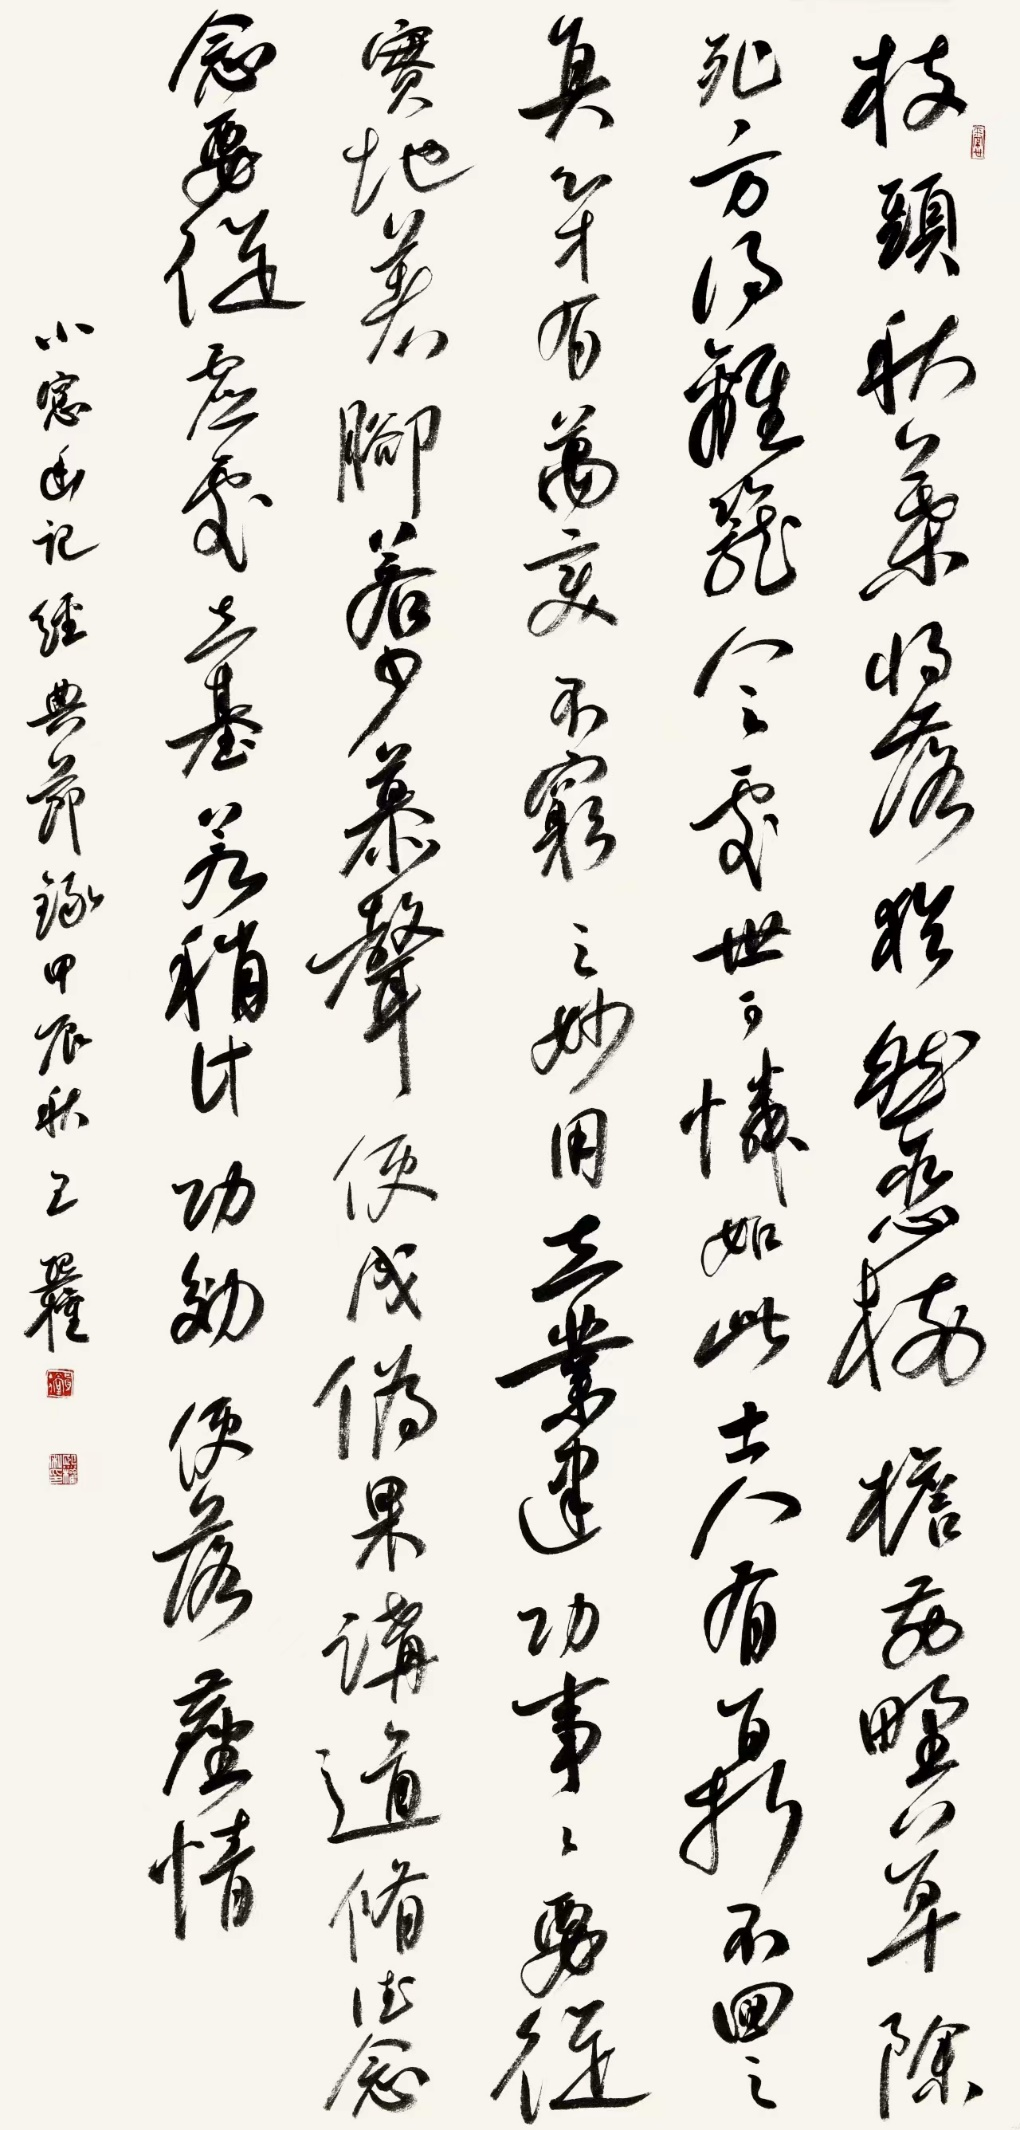 枝頭秋葉將落猶然戀樹檐前野草除
死方得離籠人之處世可憐如此士人有百折不回之
真心才有萬變不窮之妙用立業建功事々要從
實地着腳若少慕聲便成偽果講道脩德念
念要從虛處立基若稍計功効便落塵情
小窗幽記經典節錄甲辰秋王